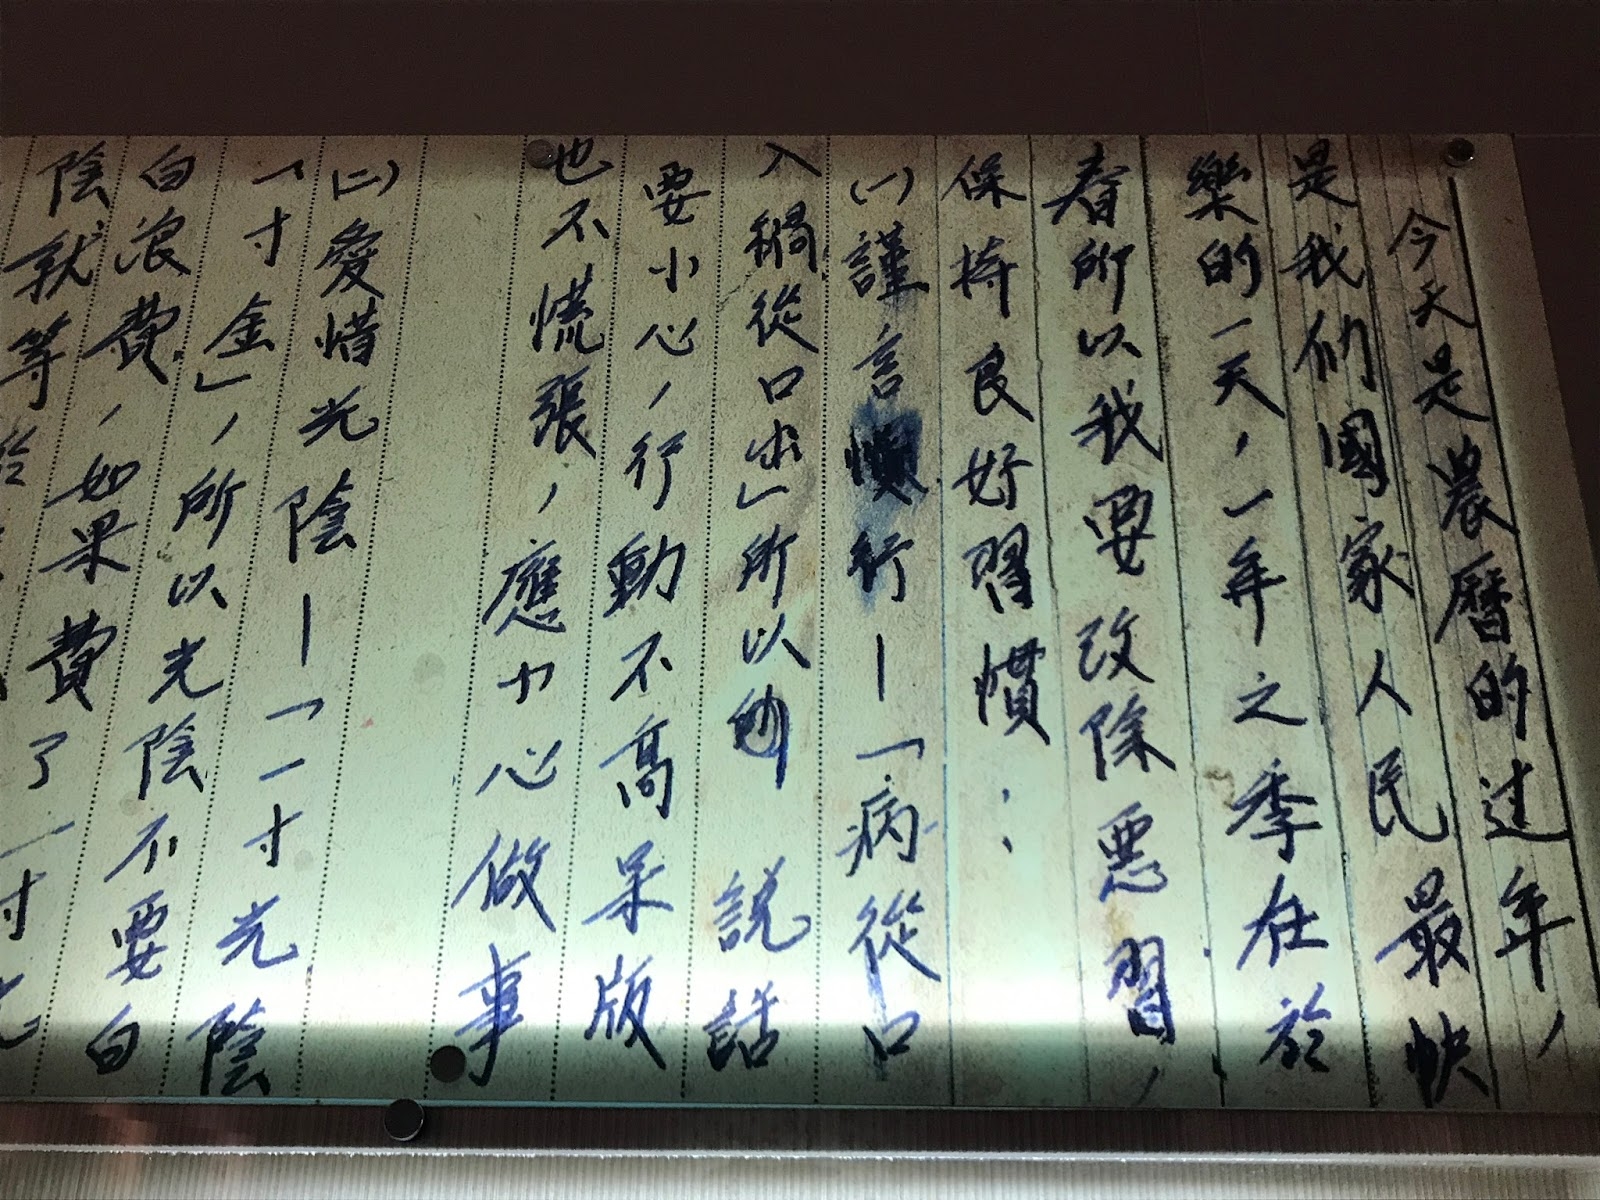 今天是農曆的过年，
是我们國家人民最快
樂的一天，一年之季在於
春所以我要改除惡習，
保持良好習慣：
(一)謹言慎行—「病從口
入禍從口出」所以 說話
要小心，行動不高呆版
也不慌張，應小心做事
(二)愛惜光陰—「一寸光陰
一寸金」，所以光陰不要白
白浪費，如果費了一寸光
陰就等於